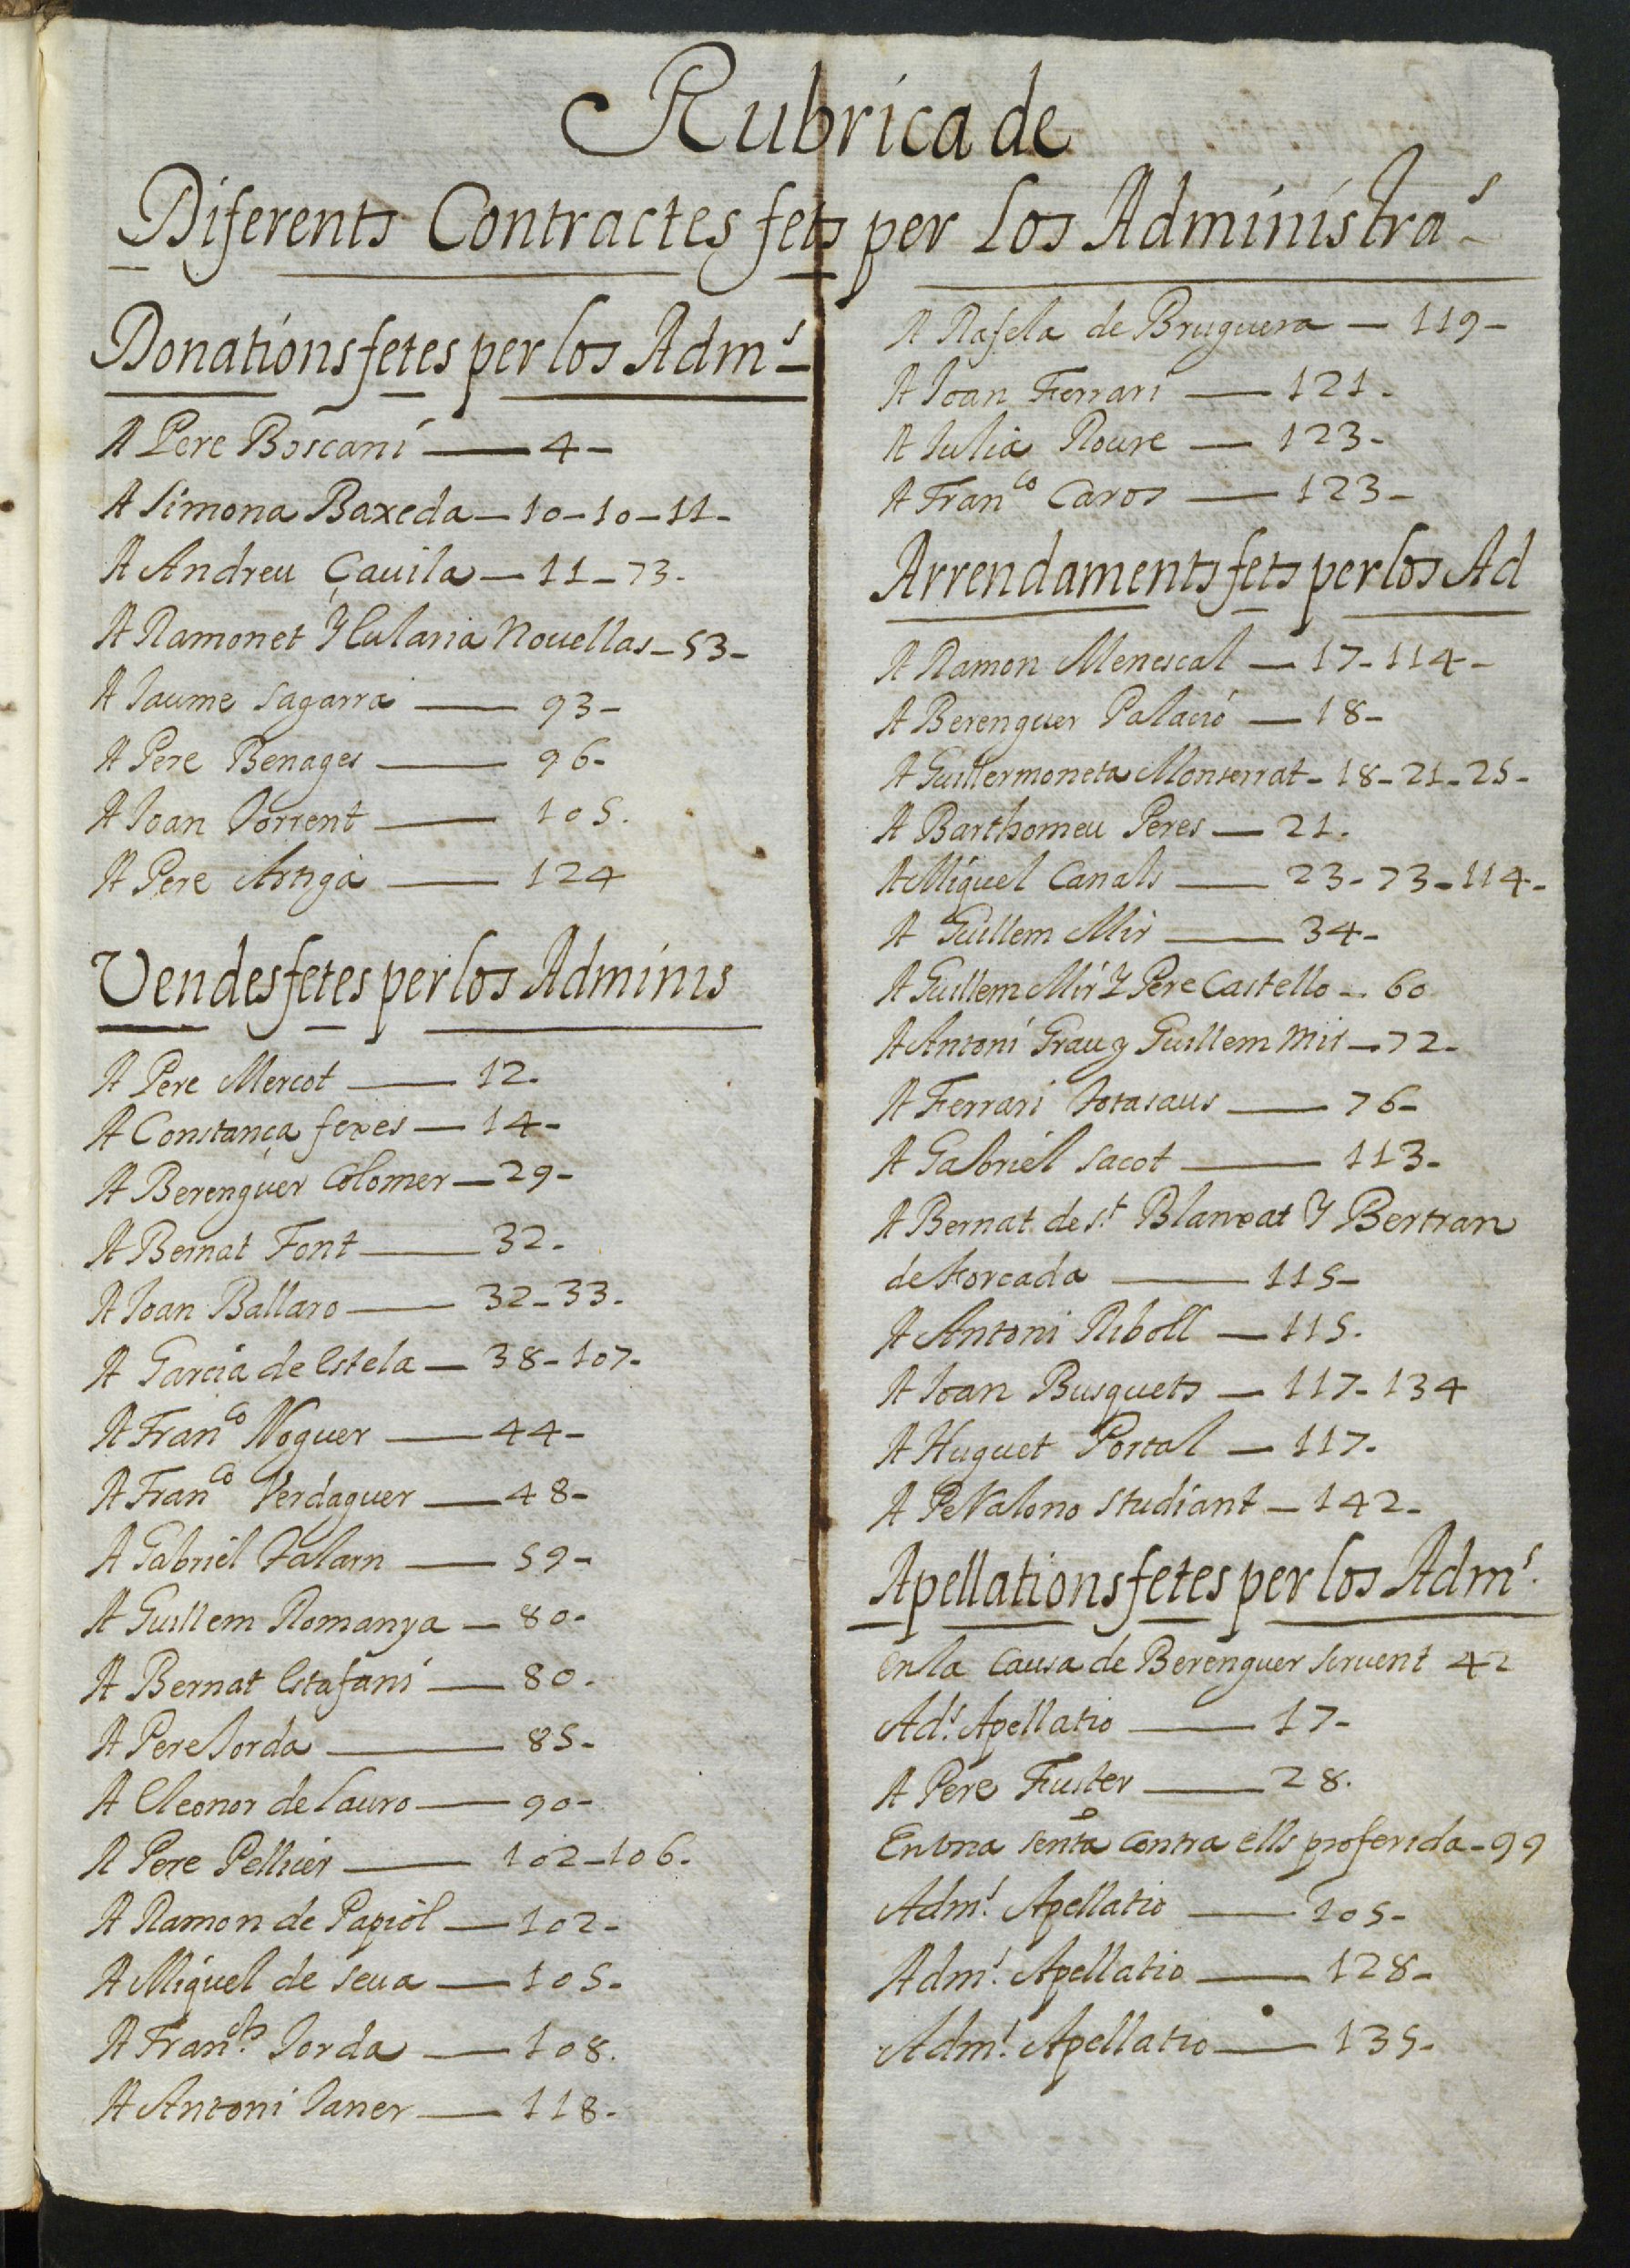 Rubrica de
Diferents Contractes fets per los Administra.s
Donations fetes per los Adm.s
A Pere Boscani — 4 -
A Simona Baxeda — 10 - 10 - 11 -
A Andreu Çauila — 11 - 73 -
A Ramonet Y Eularia Nouellas - 53 -
A Jaume Sagarra — 93 -
A Pere Benages — 96 -
A Joan Torrent — 105.
A Pere Artiga — 124
Vendes fetes per los Adminis
A Pere Mercot — 12 -
A Constança fexes — 14 -
A Berenguer Colomer — 29 -
A Bernat Font — 32 -
A Joan Ballaro — 32 - 33 -
A Garcia de Estela — 38 - 107 -
A Fran.co Noguer — 44 -
A Fran.co Verdaguer — 48 -
A Gabriel Talarn — 59 -
A Guillem Romanya — 80 -
A Bernat Estafani — 80.
A Pere Jorda — 85 -
A Eleonor de Lauro — 90 -
A Pere Pellicer — 102 - 106 -
A Ramon de Papiol — 102 -
A Miquel de Seua — 105 -
A Fran. Jorda — 108.
A Antoni Janer — 118 -
A Rafela de Bruguera — 119 -
A Joan Ferrari — 121 -
A Julia Roure — 123 -
A Fran.co Caros — 123 -
Arrendaments fets per los Ad
A Ramon Menescal — 17 - 114 -
A Berenguer Palacio — 18 -
A Guillermoneta Monserrat - 18 - 21 - 25 -
A Barthomeu Peres — 21.
A Miquel Canals — 23 - 73 - 114 -
A Guillem Mir — 34 -
A Guillem Mir Y Pere Castello - 60
A Antoni Grau y Guillem Mir — 72 -
A Ferrari Totasaus — 76 -
A Gabriel Sacot — 113 -
A Bernat de S.t Blanxat Y Bertran
de Forcada — 115 -
A Antoni Riboll — 115.
A Joan Busquets — 117 - 134
A Huguet Portal — 117 -
A Pe Valono studiant — 142 -
Apellations fetes per los Adm.s
En la Causa de Berenguer Seruent 42
Ad.s Apellatio — 17 -
A Pere Fuster — 28.
En una senta contra ells proferida - 99
Adm.s Apellatio — 105 -
Adm.s Apellatio — 128 -
Adm.s Apellatio — 135 -